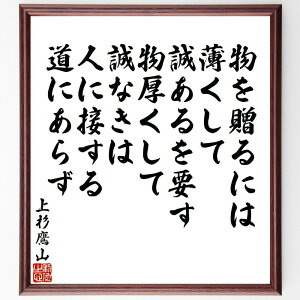 物を贈るには
薄くして
誠あるを要す
物厚くして
誠なきは
人に接する
道にあらず
上杉鷹山